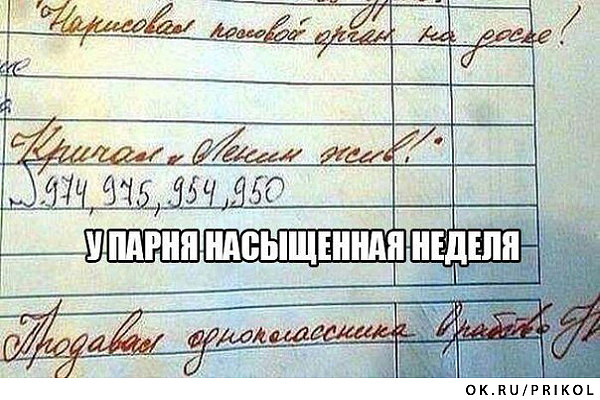 Нарисовал половой орган на доске!
Кричал „Ленин жив!"
974, 975, 954, 950
У ПАРНЯ НАСЫЩЕННАЯ НЕДЕЛЯ
Продавал одноклассника в рабство
OK.RU/PRIKOL